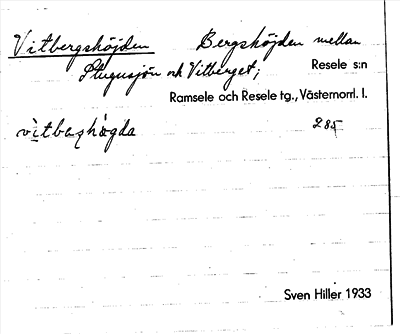 Vitbergshöjden Bergshöjden mellan
Stugusjön och Vitberget; Resele s:n
Ramsele och Resele tg., Västernorrl. l.
vìtbaɽhö̀gda 285
Sven Hiller 1933